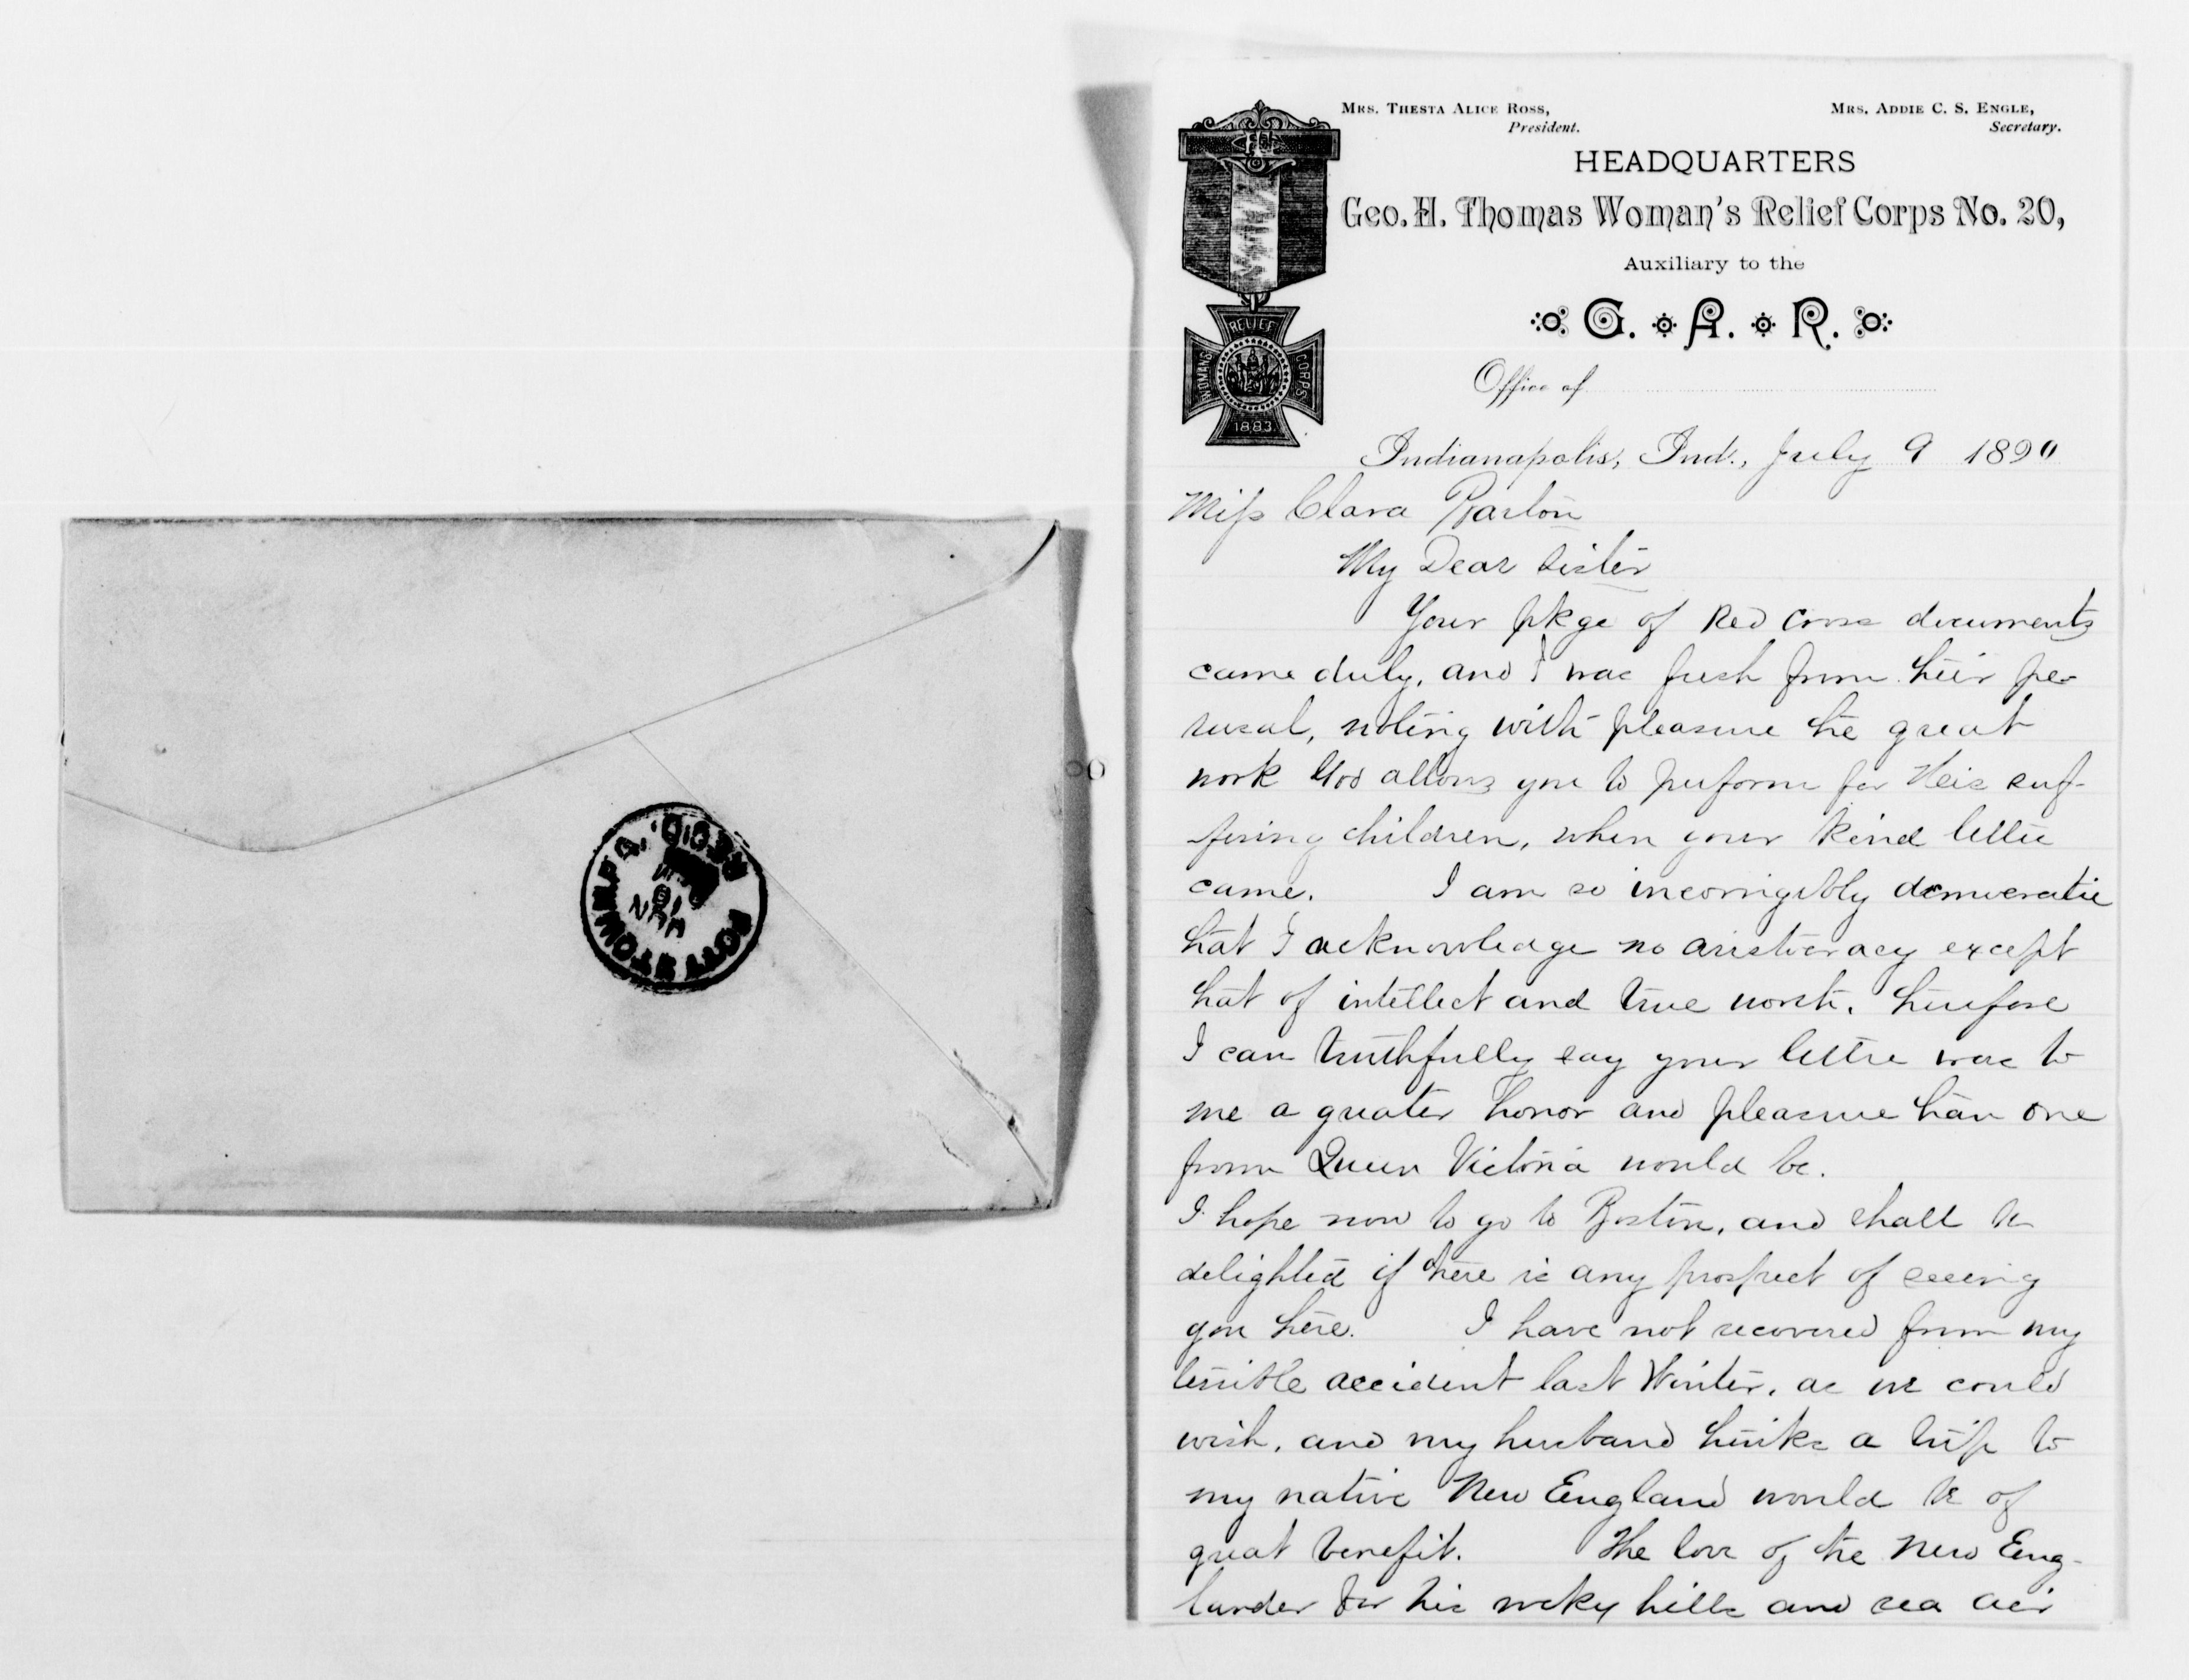 REC'D.
POTTSTOWN, PA.
JAN
Mrs. Thesta Alice Ross,
President.
Mrs. Addie C. S. Engle,
Secretary.
HEADQUARTERS
Geo. H. Thomas Woman's Relief Corps No. 20,
Auxiliary to the
G. A. R.
WOMANS RELIEF CORPS
1883.
Office of
Indianapolis, Ind., July 9 1890
Miss Clara Barton
My Dear Sister
Your pkge of Red Cross documents
came duly, and I was fresh from their pe-
rusal, noting with pleasure the great
work God allows you to perform for His suf-
fering children, when your kind letter
came. I am so incorrigibly democratic
that I acknowledge no aristocracy except
that of intellect and true worth, therefore
I can truthfully say your letter was to
me a greater honor and pleasure than one
from Queen Victoria would be.
I hope now to go to Boston, and shall be
delighted if there is any prospect of seeing
you there. I have not recovered from my
terrible accident last Winter, as we could
wish, and my husband thinks a trip to
my native New England would be of
great benefit. The love of the New Eng-
lander for his rocky hills and sea air